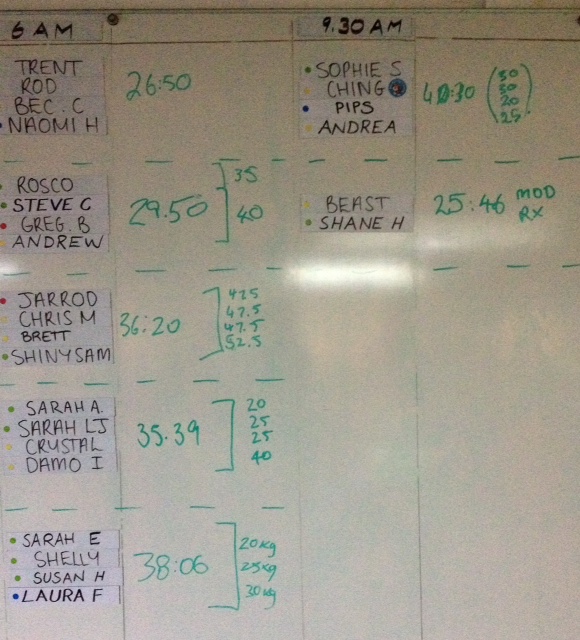 6 AM
TRENT
ROD
BEC. C
NAOMI H
26:50
ROSCO
STEVE C
GREG. B
ANDREW
29.50
35
40
JARROD
CHRIS M
BRETT
SHINY SAM
36:20
425
47.5
47.5
52.5
SARAH A.
SARAH LJ
CRYSTAL
DAMO I
35.39
20
25
25
40
SARAH E
SHELLY
SUSAN H
LAURA F
38:06
20kg
25kg
30kg
9.30 AM
SOPHIE S
CHING
PIPS
ANDREA
20
25
BEAST
SHANE H
25:46
MOD
RX